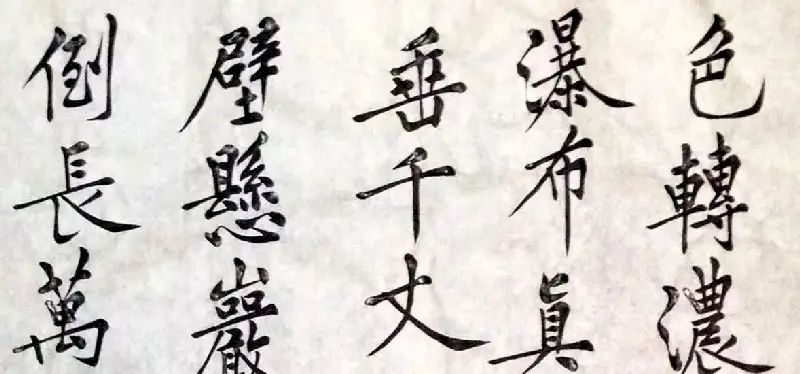 色轉濃
瀑布真
垂千丈
壁懸巖
倒長萬